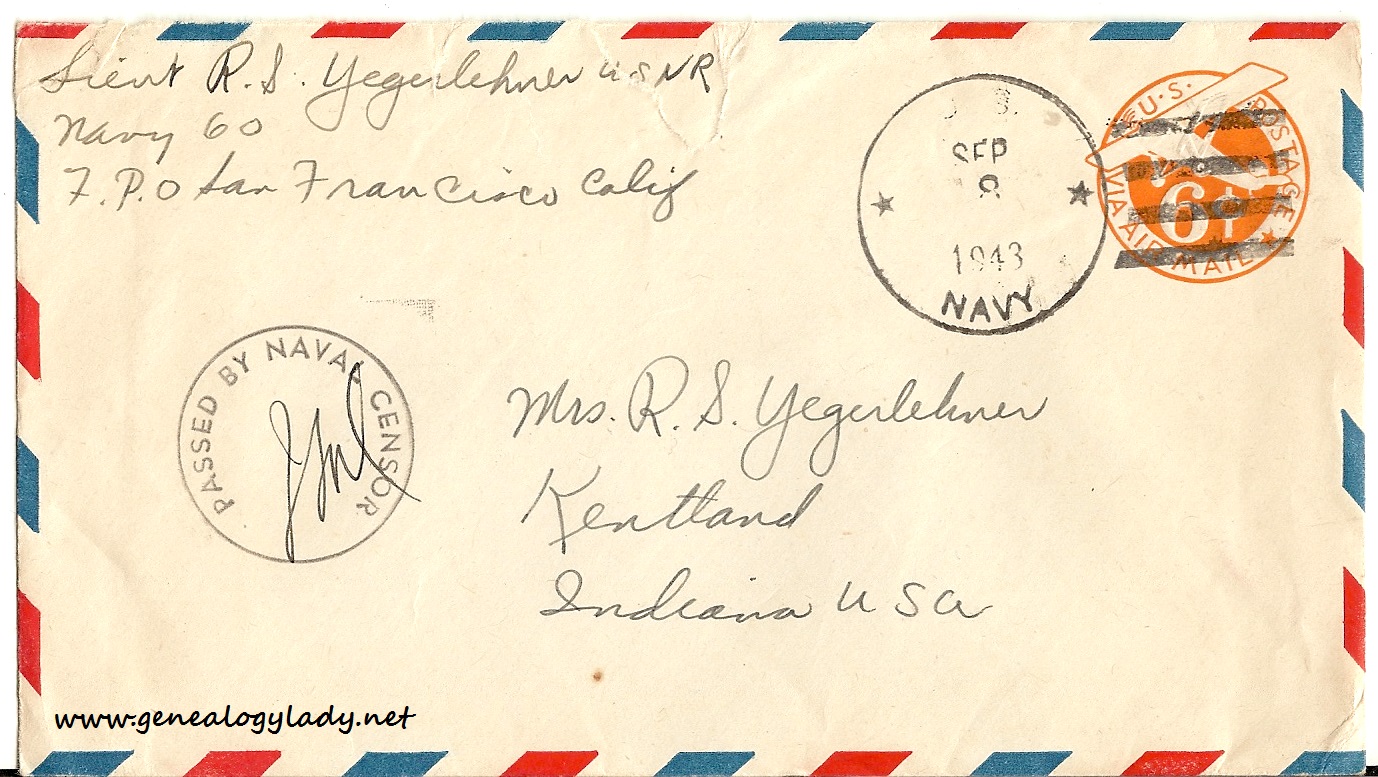 Lieut R. S. Yegerlehner USNR
Navy 60
F.P.O San Francisco Calif
SEP
8
1943
NAVY
U.S. POSTAGE
6¢
VIA AIR MAIL
PASSED BY NAVAL CENSOR
Mrs. R. S. Yegerlehner
Kentland
Indiana USA
www.genealogylady.net